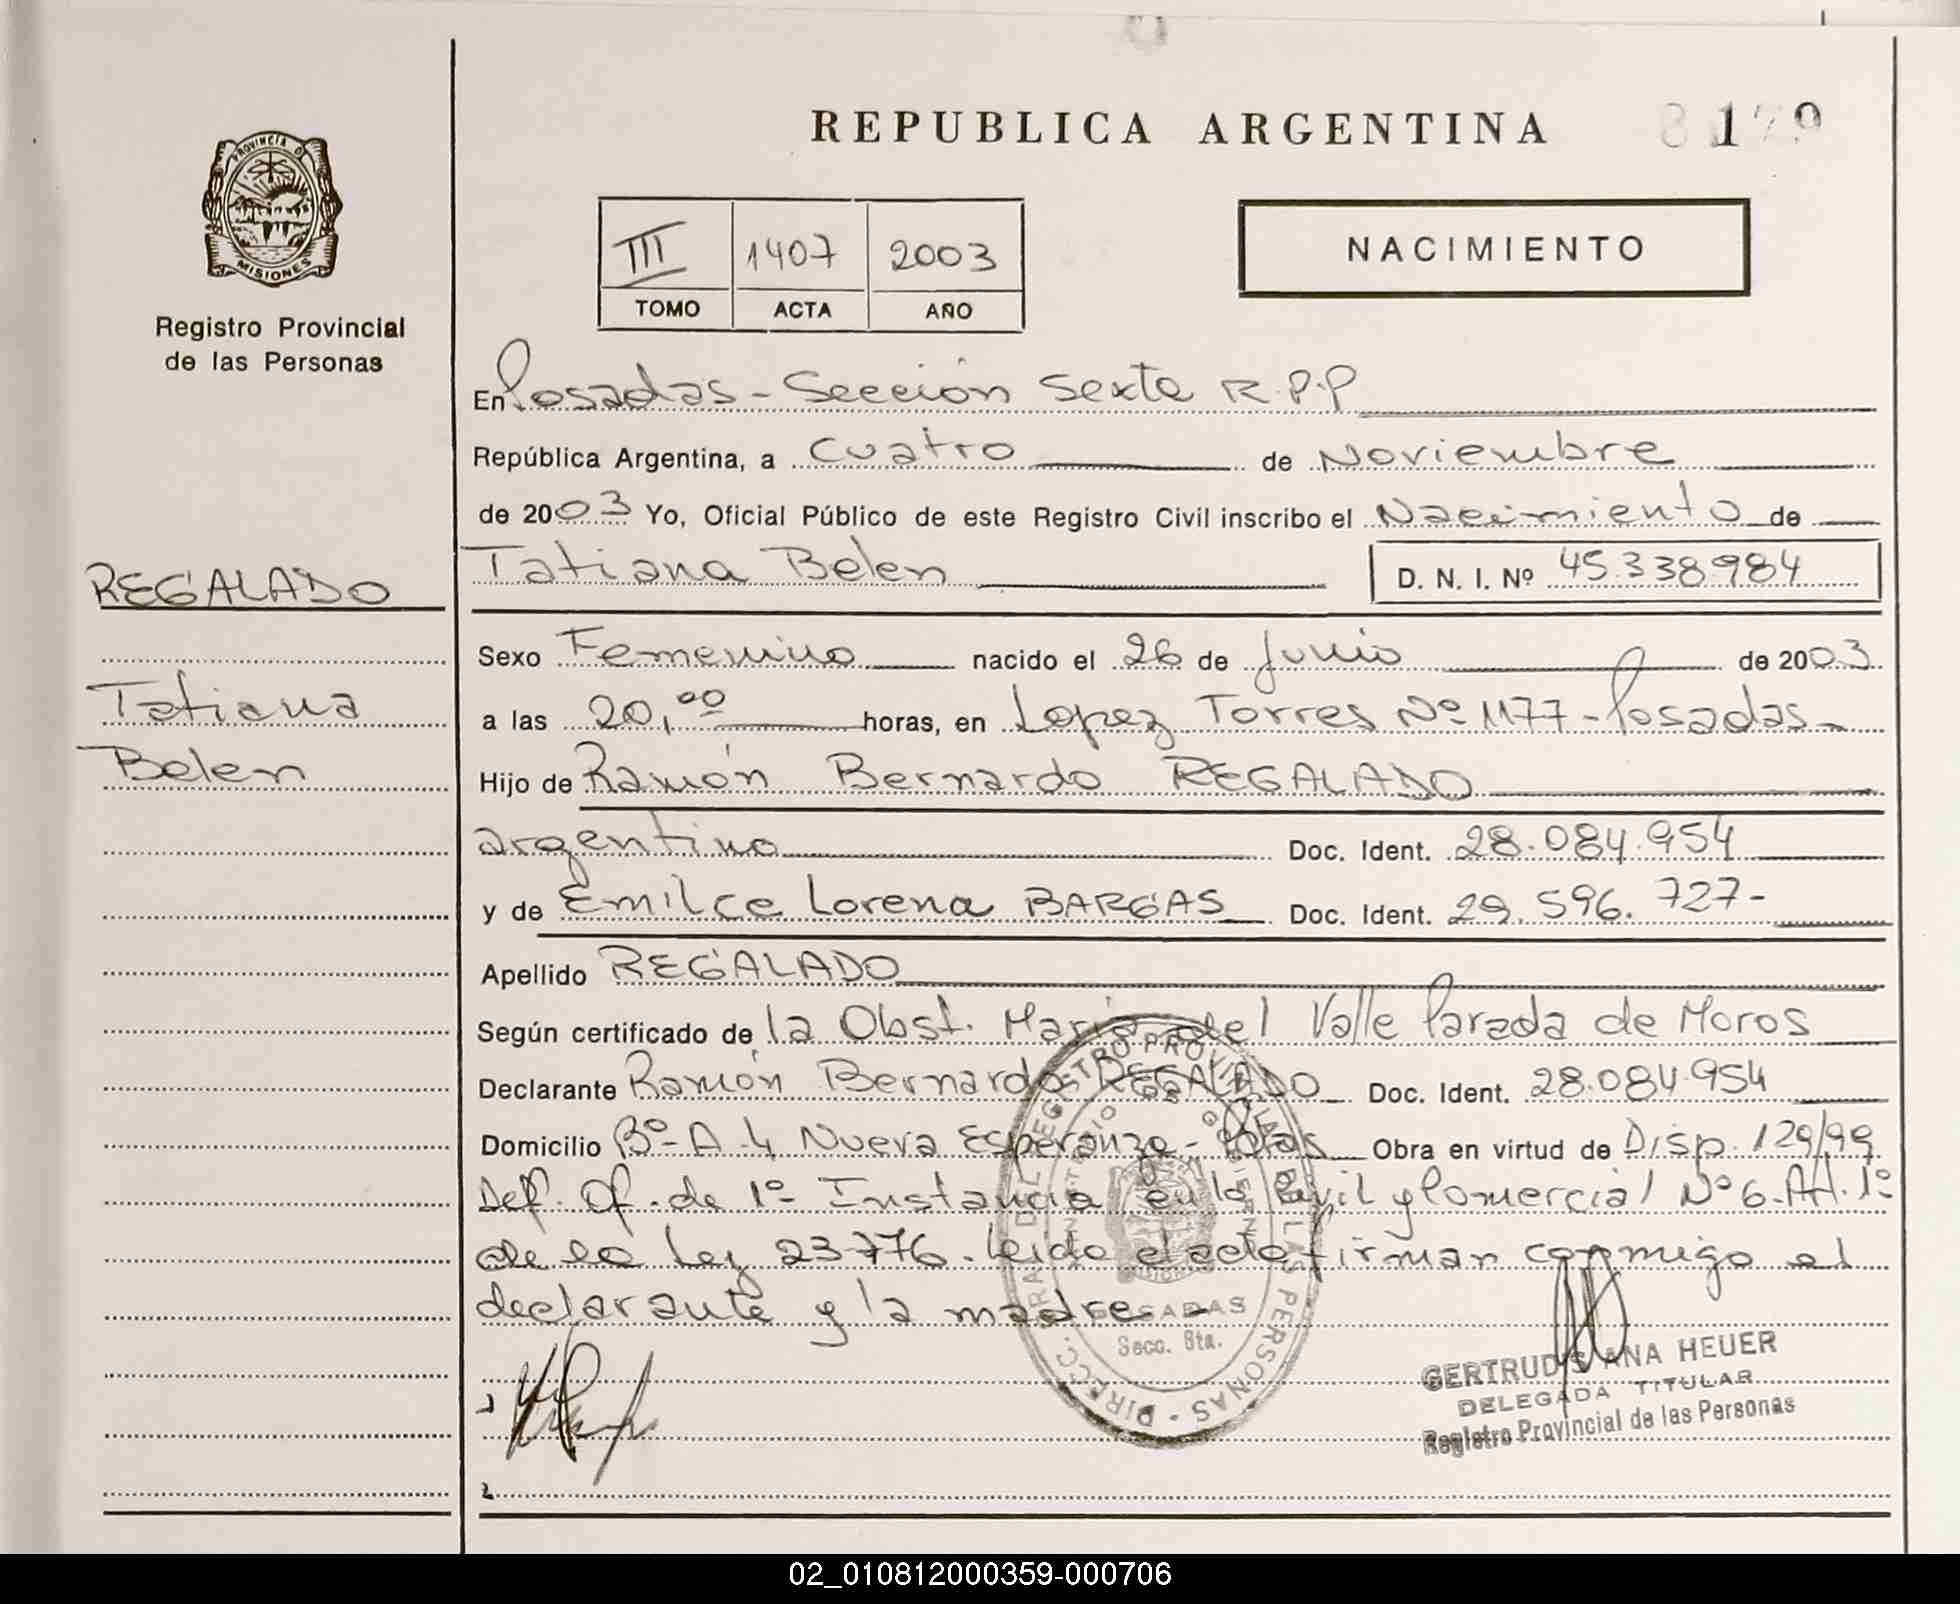 REPUBLICA ARGENTINA
PROVINCIA DE
MISIONES
Registro Provincial
de las Personas
III 1407 2003
TOMO ACTA AÑO
NACIMIENTO
En Posadas - Sección Sexta R.P.P
República Argentina, a Cuatro de Noviembre
de 2003 Yo, Oficial Público de este Registro Civil inscribo el Nacimiento de
REGALADO
Tatiana Belen D. N. I. Nº 45.338984
Sexo Femenino nacido el 26 de Junio de 2003.
Tatiana
a las 20,00 horas, en Lopez Torres Nº 1177 - Posadas -
Belen
Hijo de Ramón Bernardo REGALADO
argentino Doc. Ident. 28.084.954
y de Emilce Lorena BARGAS Doc. Ident. 29.596.727-
Apellido REGALADO
Según certificado de la Obst. Maria del Valle Parada de Moros
Declarante Ramón Bernardo REGALADO Doc. Ident. 28.084.954
Domicilio Bº- A-4 Nueva Esperanza - Pdas Obra en virtud de Disp. 129/99
Def. Of. de 1º Instancia en lo Civil y Comercial Nº 6. Art. 1º
de la Ley 23776. Leida el acta firman conmigo el
declarante y la madre -
DIRECC. GRAL DEL REGISTRO PROVINCIAL DE LAS PERSONAS
MINISTERIO DE GOBIERNO
MISIONES
POSADAS
Secc. 6ta.
GERTRUDIS ANA HEUER
DELEGADA TITULAR
Registro Provincial de las Personas
02_010812000359-000706